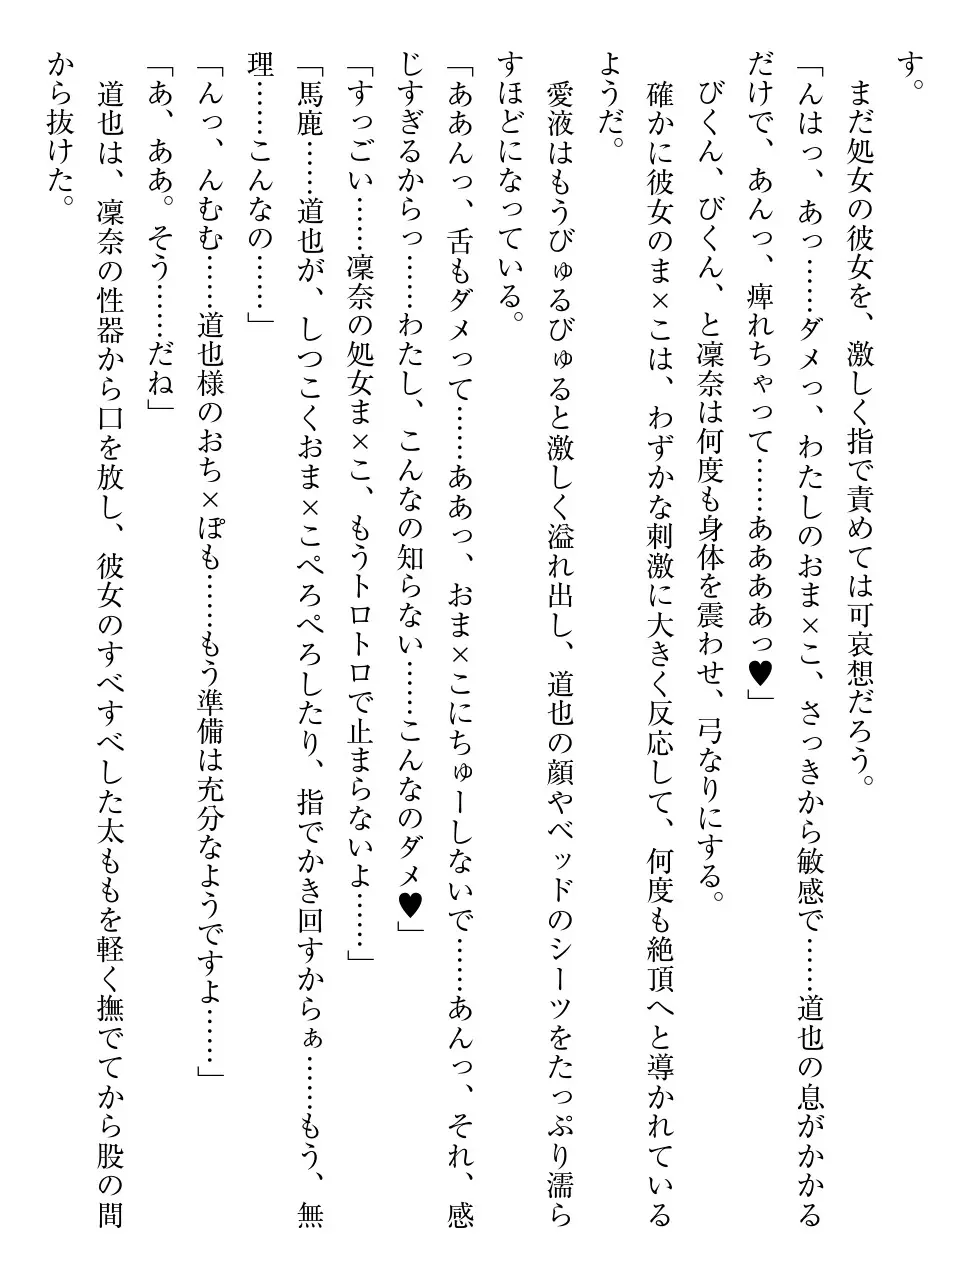 す。
　まだ処女の彼女を、激しく指で責めては可哀想だろう。
「んはっ、あっ……ダメっ、わたしのおま×こ、さっきから敏感で……道也の息がかかる
だけで、あんっ、痺れちゃって……ああああっ♥」
　びくん、びくん、と凜奈は何度も身体を震わせ、弓なりにする。
　確かに彼女のま×こは、わずかな刺激に大きく反応して、何度も絶頂へと導かれている
ようだ。
　愛液はもうびゅるびゅると激しく溢れ出し、道也の顔やベッドのシーツをたっぷり濡ら
すほどになっている。
「ああんっ、舌もダメって……ああっ、おま×こにちゅーしないで……あんっ、それ、感
じすぎるからっ……わたし、こんなの知らない……こんなのダメ♥」
「すっごい……凜奈の処女ま×こ、もうトロトロで止まらないよ……」
「馬鹿……道也が、しつこくおま×こぺろぺろしたり、指でかき回すからぁ……もう、無
理……こんなの……」
「んっ、んむむ……道也様のおち×ぽも……もう準備は充分なようですよ……」
「あ、ああ。そう……だね」
　道也は、凜奈の性器から口を放し、彼女のすべすべした太ももを軽く撫でてから股の間
から抜けた。